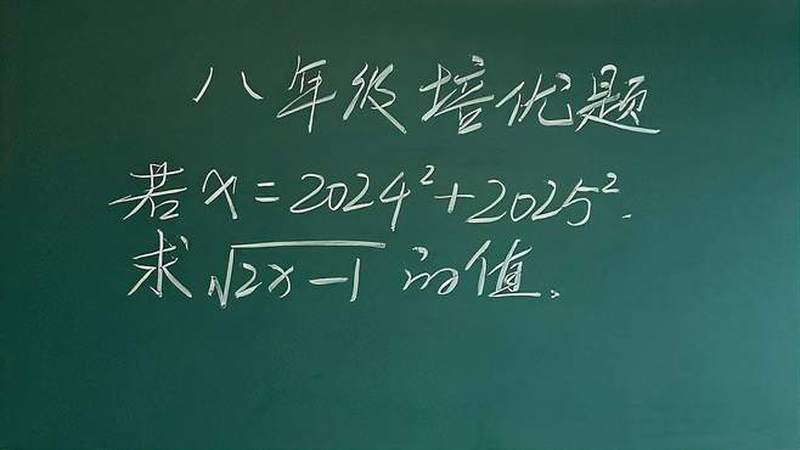 八年级培优题
若x=2024²+2025².
求√(2x-1) 的值.